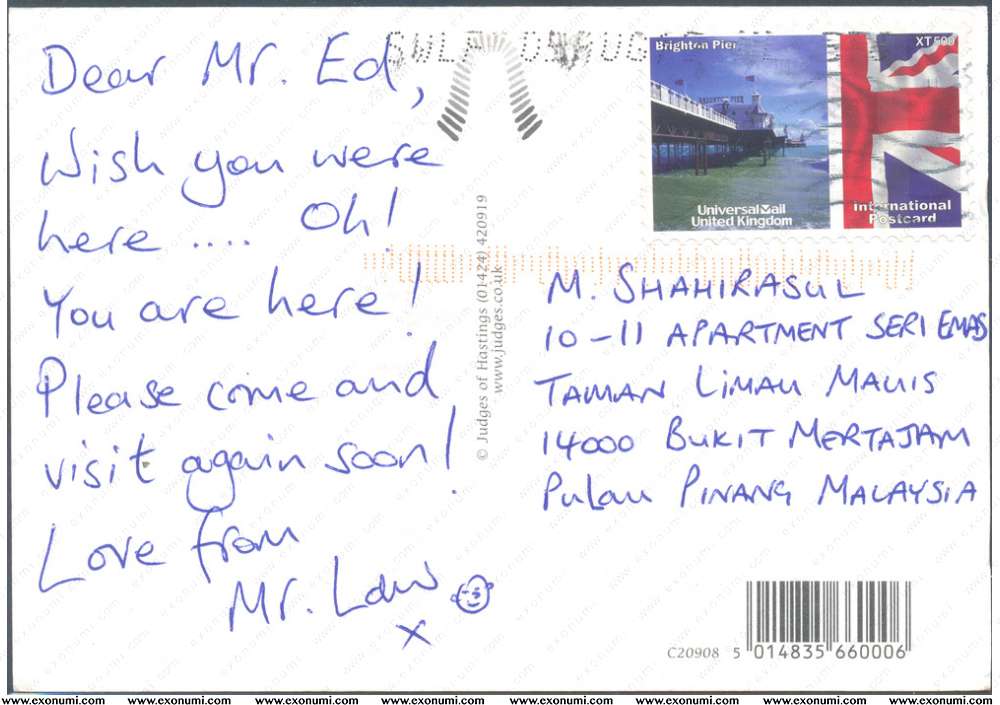 Dear Mr. Ed,
Wish you were
here .... Oh!
You are here!
Please come and
visit again soon!
Love from
Mr. Law
x
© Judges of Hastings (01424) 420919
www.judges.co.uk
Brighton Pier
XT500
UniversalMail
United Kingdom
International
Postcard
M. SHAHIRASUL
10-11 APARTMENT SERI EMAS
TAMAN LIMAU MANIS
14000 BUKIT MERTAJAM
PULAU PINANG MALAYSIA
C20908 5 014835 660006
www.exonumi.com www.exonumi.com www.exonumi.com www.exonumi.com www.exonumi.com www.exonumi.com www.exonumi.com www.exonumi.com